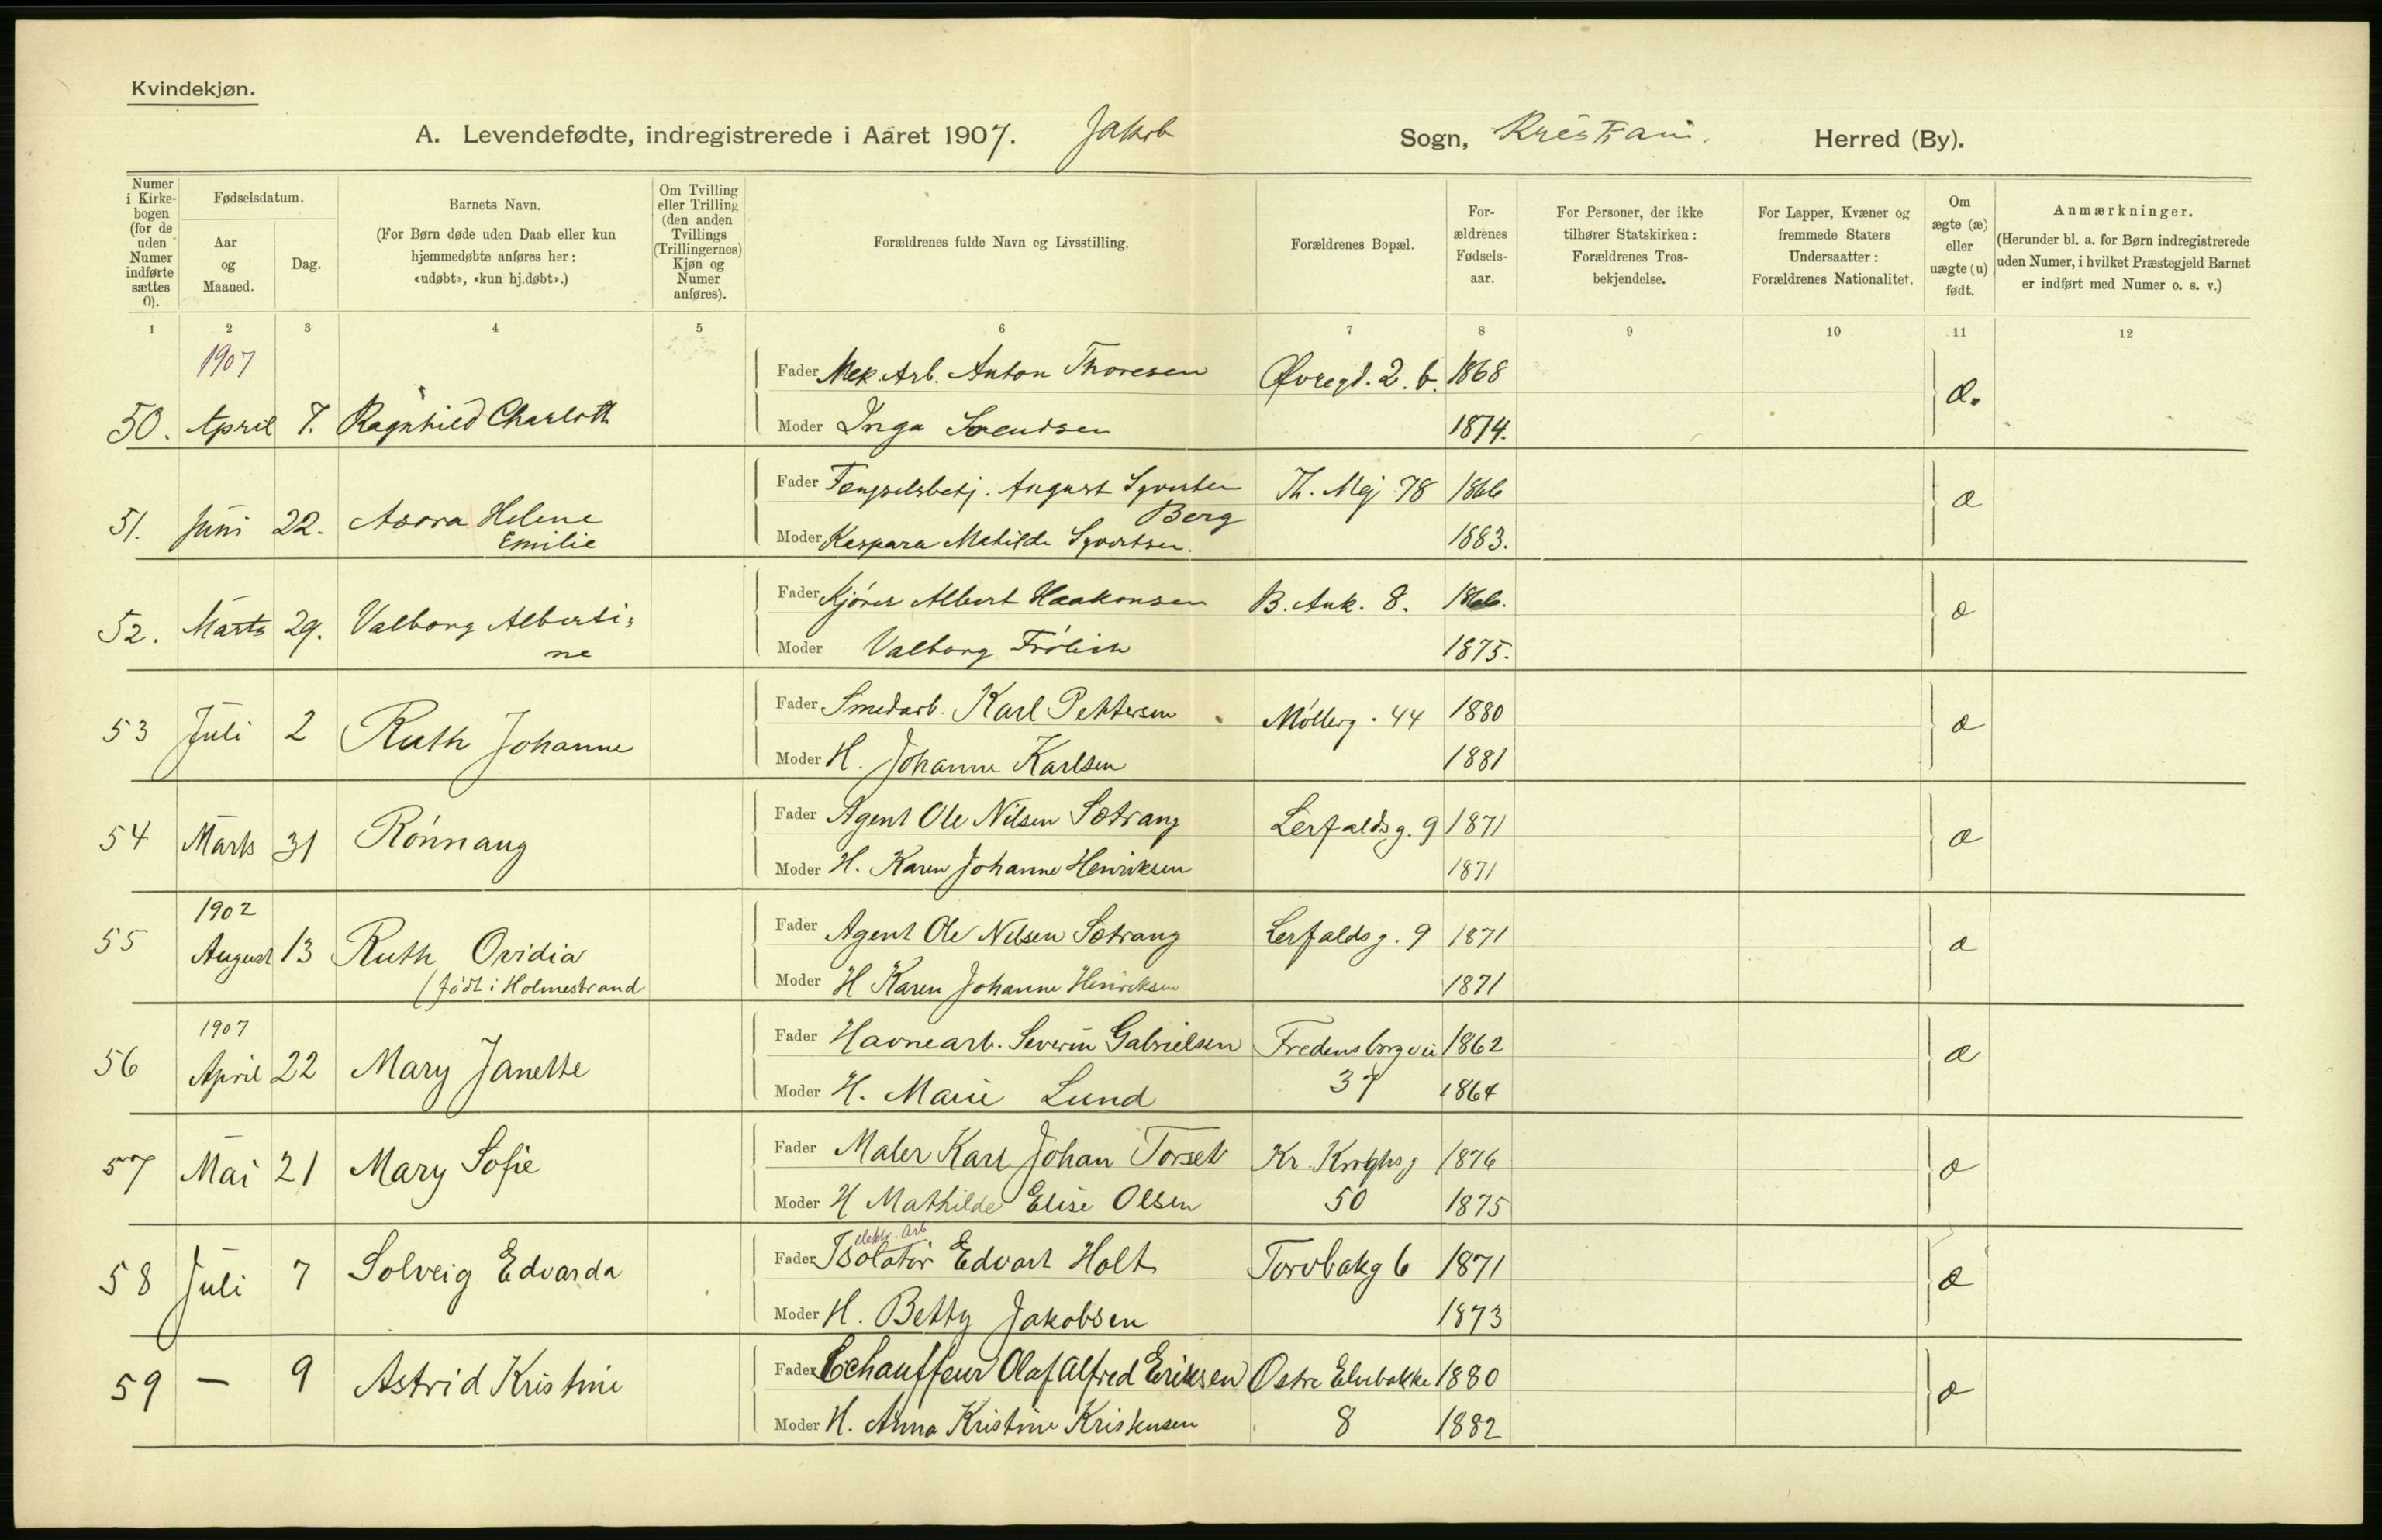 Kvindekjøn.
A. Levendefødte, indregistrerede i Aaret 1907. Jakob Sogn, Kristiani. Herred (By).
Numer i Kirke-bogen (for de uden Numer indførte sættes 0).
Fødselsdatum.
Aar og Maaned.
Dag.
Barnets Navn.
(For Børn døde uden Daab eller kun hjemmedøbte anføres her: «udøbt», «kun hj.døbt».)
Om Tvilling eller Trilling (den anden Tvillings (Trillingernes) Kjøn og Numer anføres).
Forældrenes fulde Navn og Livsstilling.
Forældrenes Bopæl.
For-ældrenes Fødsels-aar.
For Personer, der ikke tilhører Statskirken: Forældrenes Tros-bekjendelse.
For Lapper, Kvæner og fremmede Staters Undersaatter: Forældrenes Nationalitet.
Om ægte (æ) eller uægte (u) født.
Anmærkninger.
(Herunder bl. a. for Børn indregistrerede uden Numer, i hvilket Præstegjeld Barnet er indført med Numer o. s. v.)
1 2 3 4 5 6 7 8 9 10 11 12
1907
Fader Mek. Arb. Anton Thoresen Øvregd. 2. b. 1868
50. April 7. Ragnhild Charloth æ.
Moder Inga Svendsen 1874.
Fader Fængselsbetj. August Syvertsen Th. Mej 78 1866
Berg
51. Juni 22. Asora Helene æ
Emilie
Moder Kaspara Matilde Syvertsen. 1883.
Fader Kjører Albert Haakonsen B. Ank. 8. 1866.
52. Marts 29. Valborg Alberti-
ne æ
Moder Valborg Frölich 1875.
Fader Smedarb. Karl Pettersen Möllerg. 44 1880
53 Juli 2 Ruth Johanne æ
Moder H. Johanne Karlsen 1881
Fader Agent Ole Nilsen Sætrang Lerfaldsg. 9 1871
54 Marts 31 Rönnaug æ
Moder H. Karen Johanne Henriksen 1871
1902
Fader Agent Ole Nilsen Sætrang Lerfaldsg. 9 1871
55 August 13 Ruth Ovidia æ
(födt i Holmestrand
Moder H Karen Johanne Henriksen 1871
1907
Fader Havnearb. Severin Gabrielsen Fredensborgvei 1862
56 April 22 Mary Janette æ
Moder H. Marie Lund 37 1864
Fader Maler Karl Johan Torseth Kr. Kroghsg 1876
57 Mai 21 Mary Sofie æ
Moder H Mathilde Elise Olsen 50 1875
elektr. Arb
Fader Isolatör Edvart Holt Torvbakg 6 1871
58 Juli 7 Solveig Edvarda æ
Moder H. Betty Jakobsen 1873
Fader Cchauffeur Olaf Alfred Eriksen Østre Elvebakke 1880
59 — 9 Astrid Kristine æ
Moder H. Anna Kristine Kristensen 8 1882